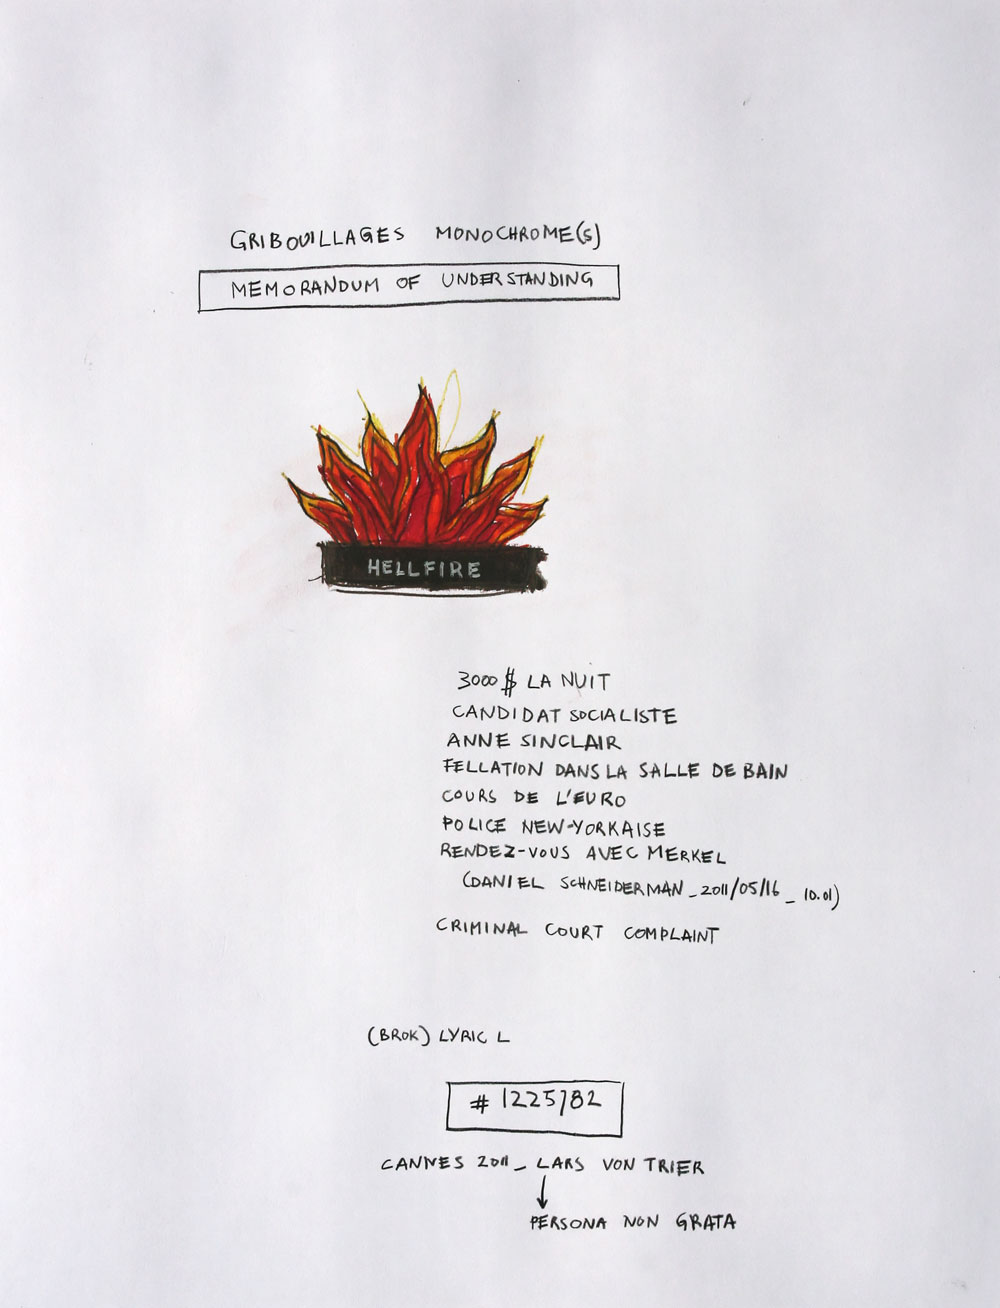 GRIBOUILLAGES MONOCHROME(S)
MEMORANDUM OF UNDERSTANDING
HELLFIRE
3000 $ LA NUIT
CANDIDAT SOCIALISTE
ANNE SINCLAIR
FELLATION DANS LA SALLE DE BAIN
COURS DE L'EURO
POLICE NEW-YORKAISE
RENDEZ-VOUS AVEC MERKEL
(DANIEL SCHNEIDERMAN _ 2011/05/16 _ 10.01)
CRIMINAL COURT COMPLAINT
(BROK) LYRIC L
# 1225782
CANNES 2011 _ LARS VON TRIER
PERSONA NON GRATA